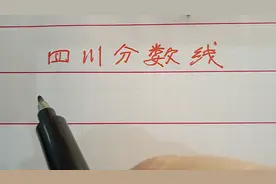 四川分数线